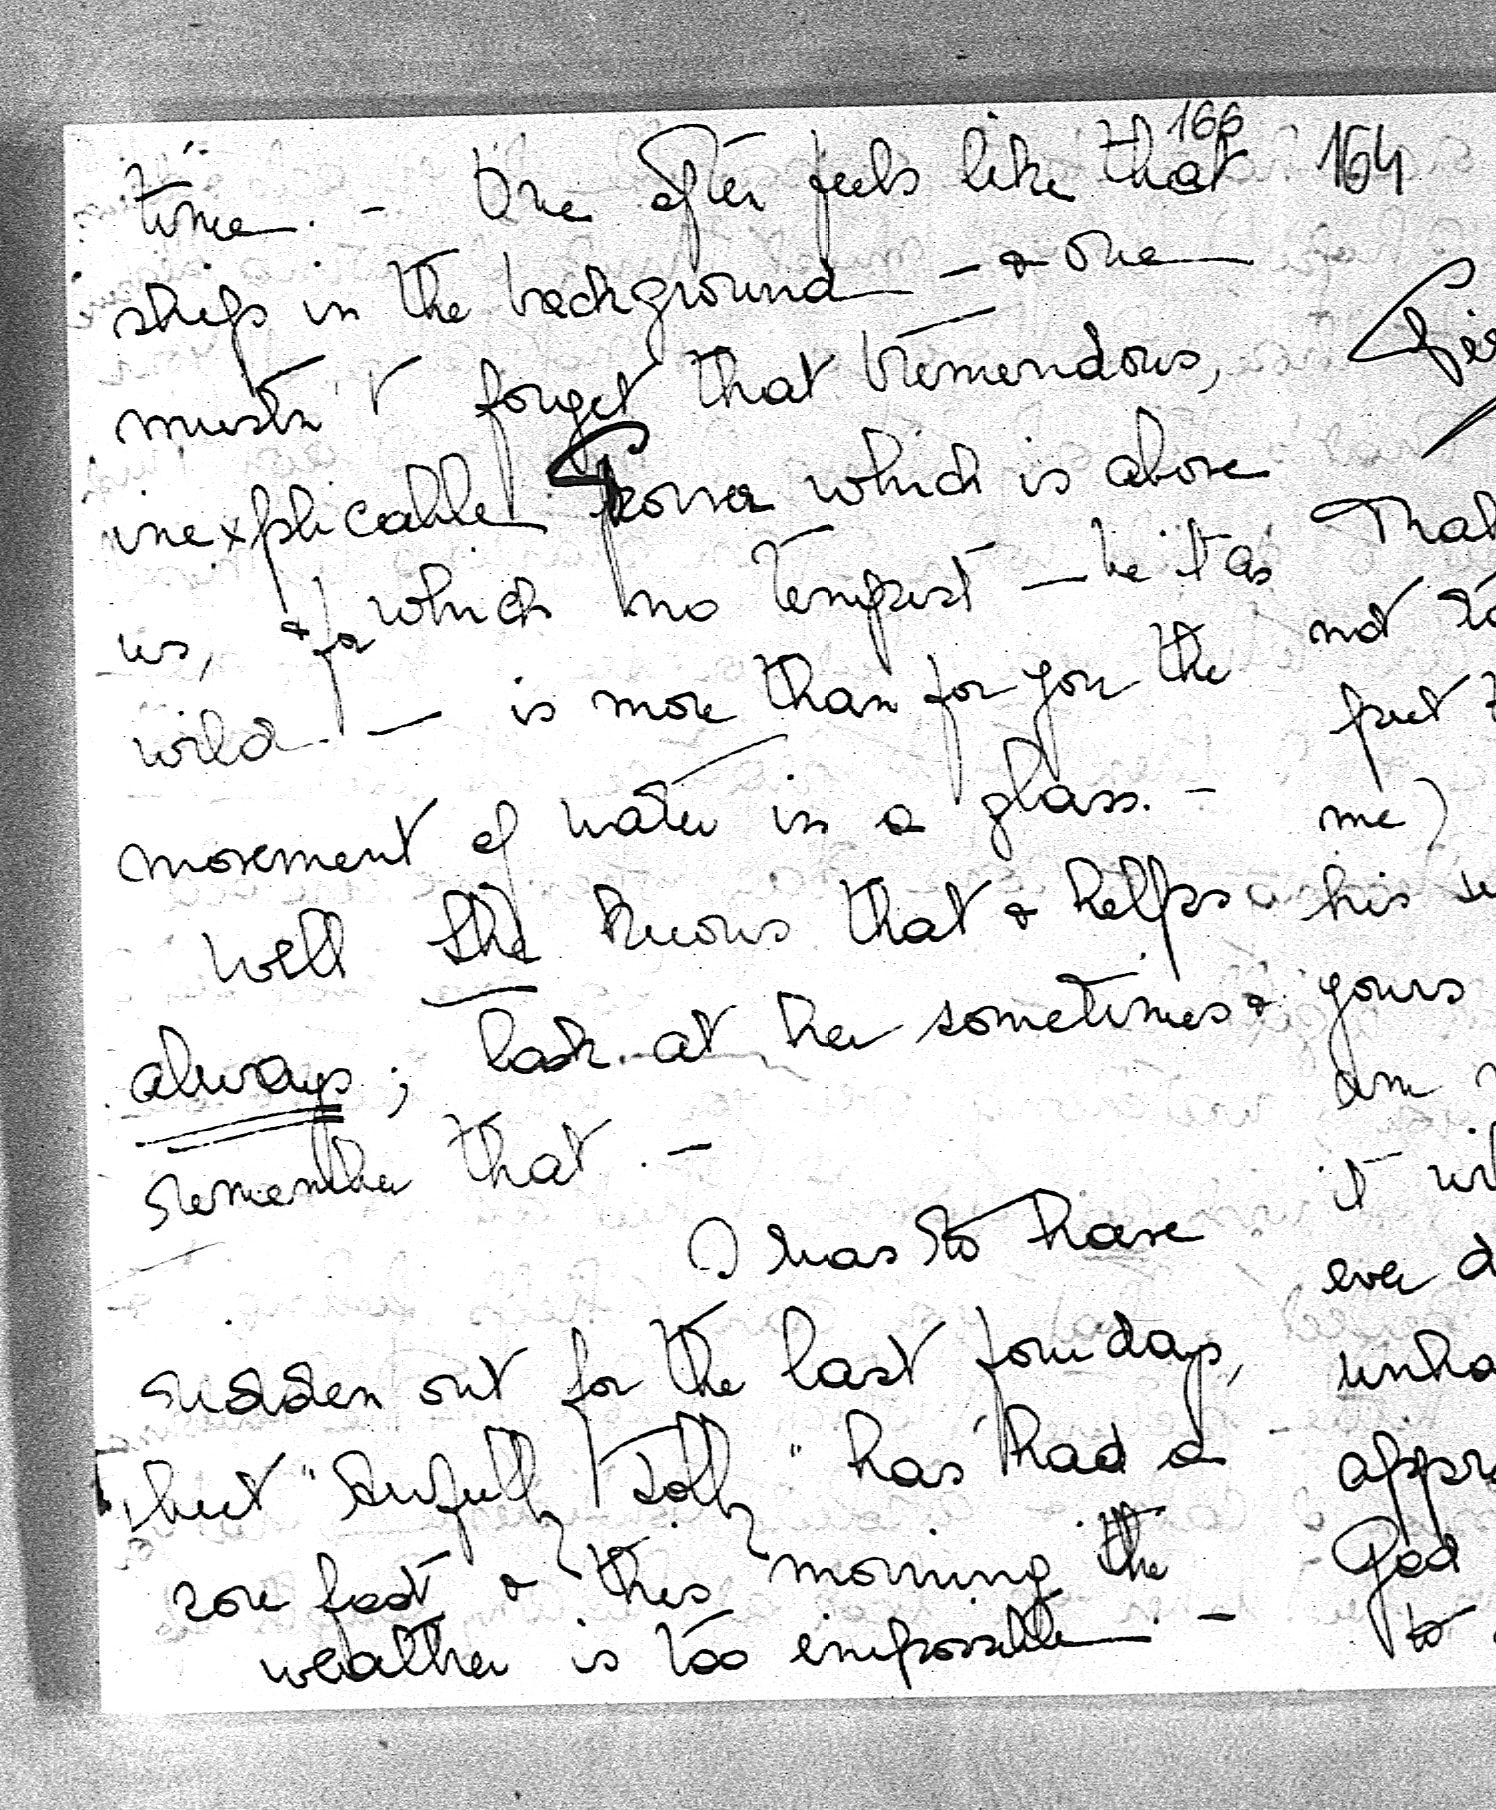 166 164
time. - One often feels like that
ships in the background - & one
mustn't forget that tremendous,
inexplicable Power which is above
us, & for which no tempest - be it as
wild - is more than for you the
movement of water in a glass. -
Well she knows that & helps
always; look at her sometimes &
remember that. -
I was to have
ridden out for the last four days,
but "Awfully Jolly" has had a
sore foot & this morning the
weather is too impossible. -
That
not
put
me)
his
yours
am
it
ever
appr
God
to